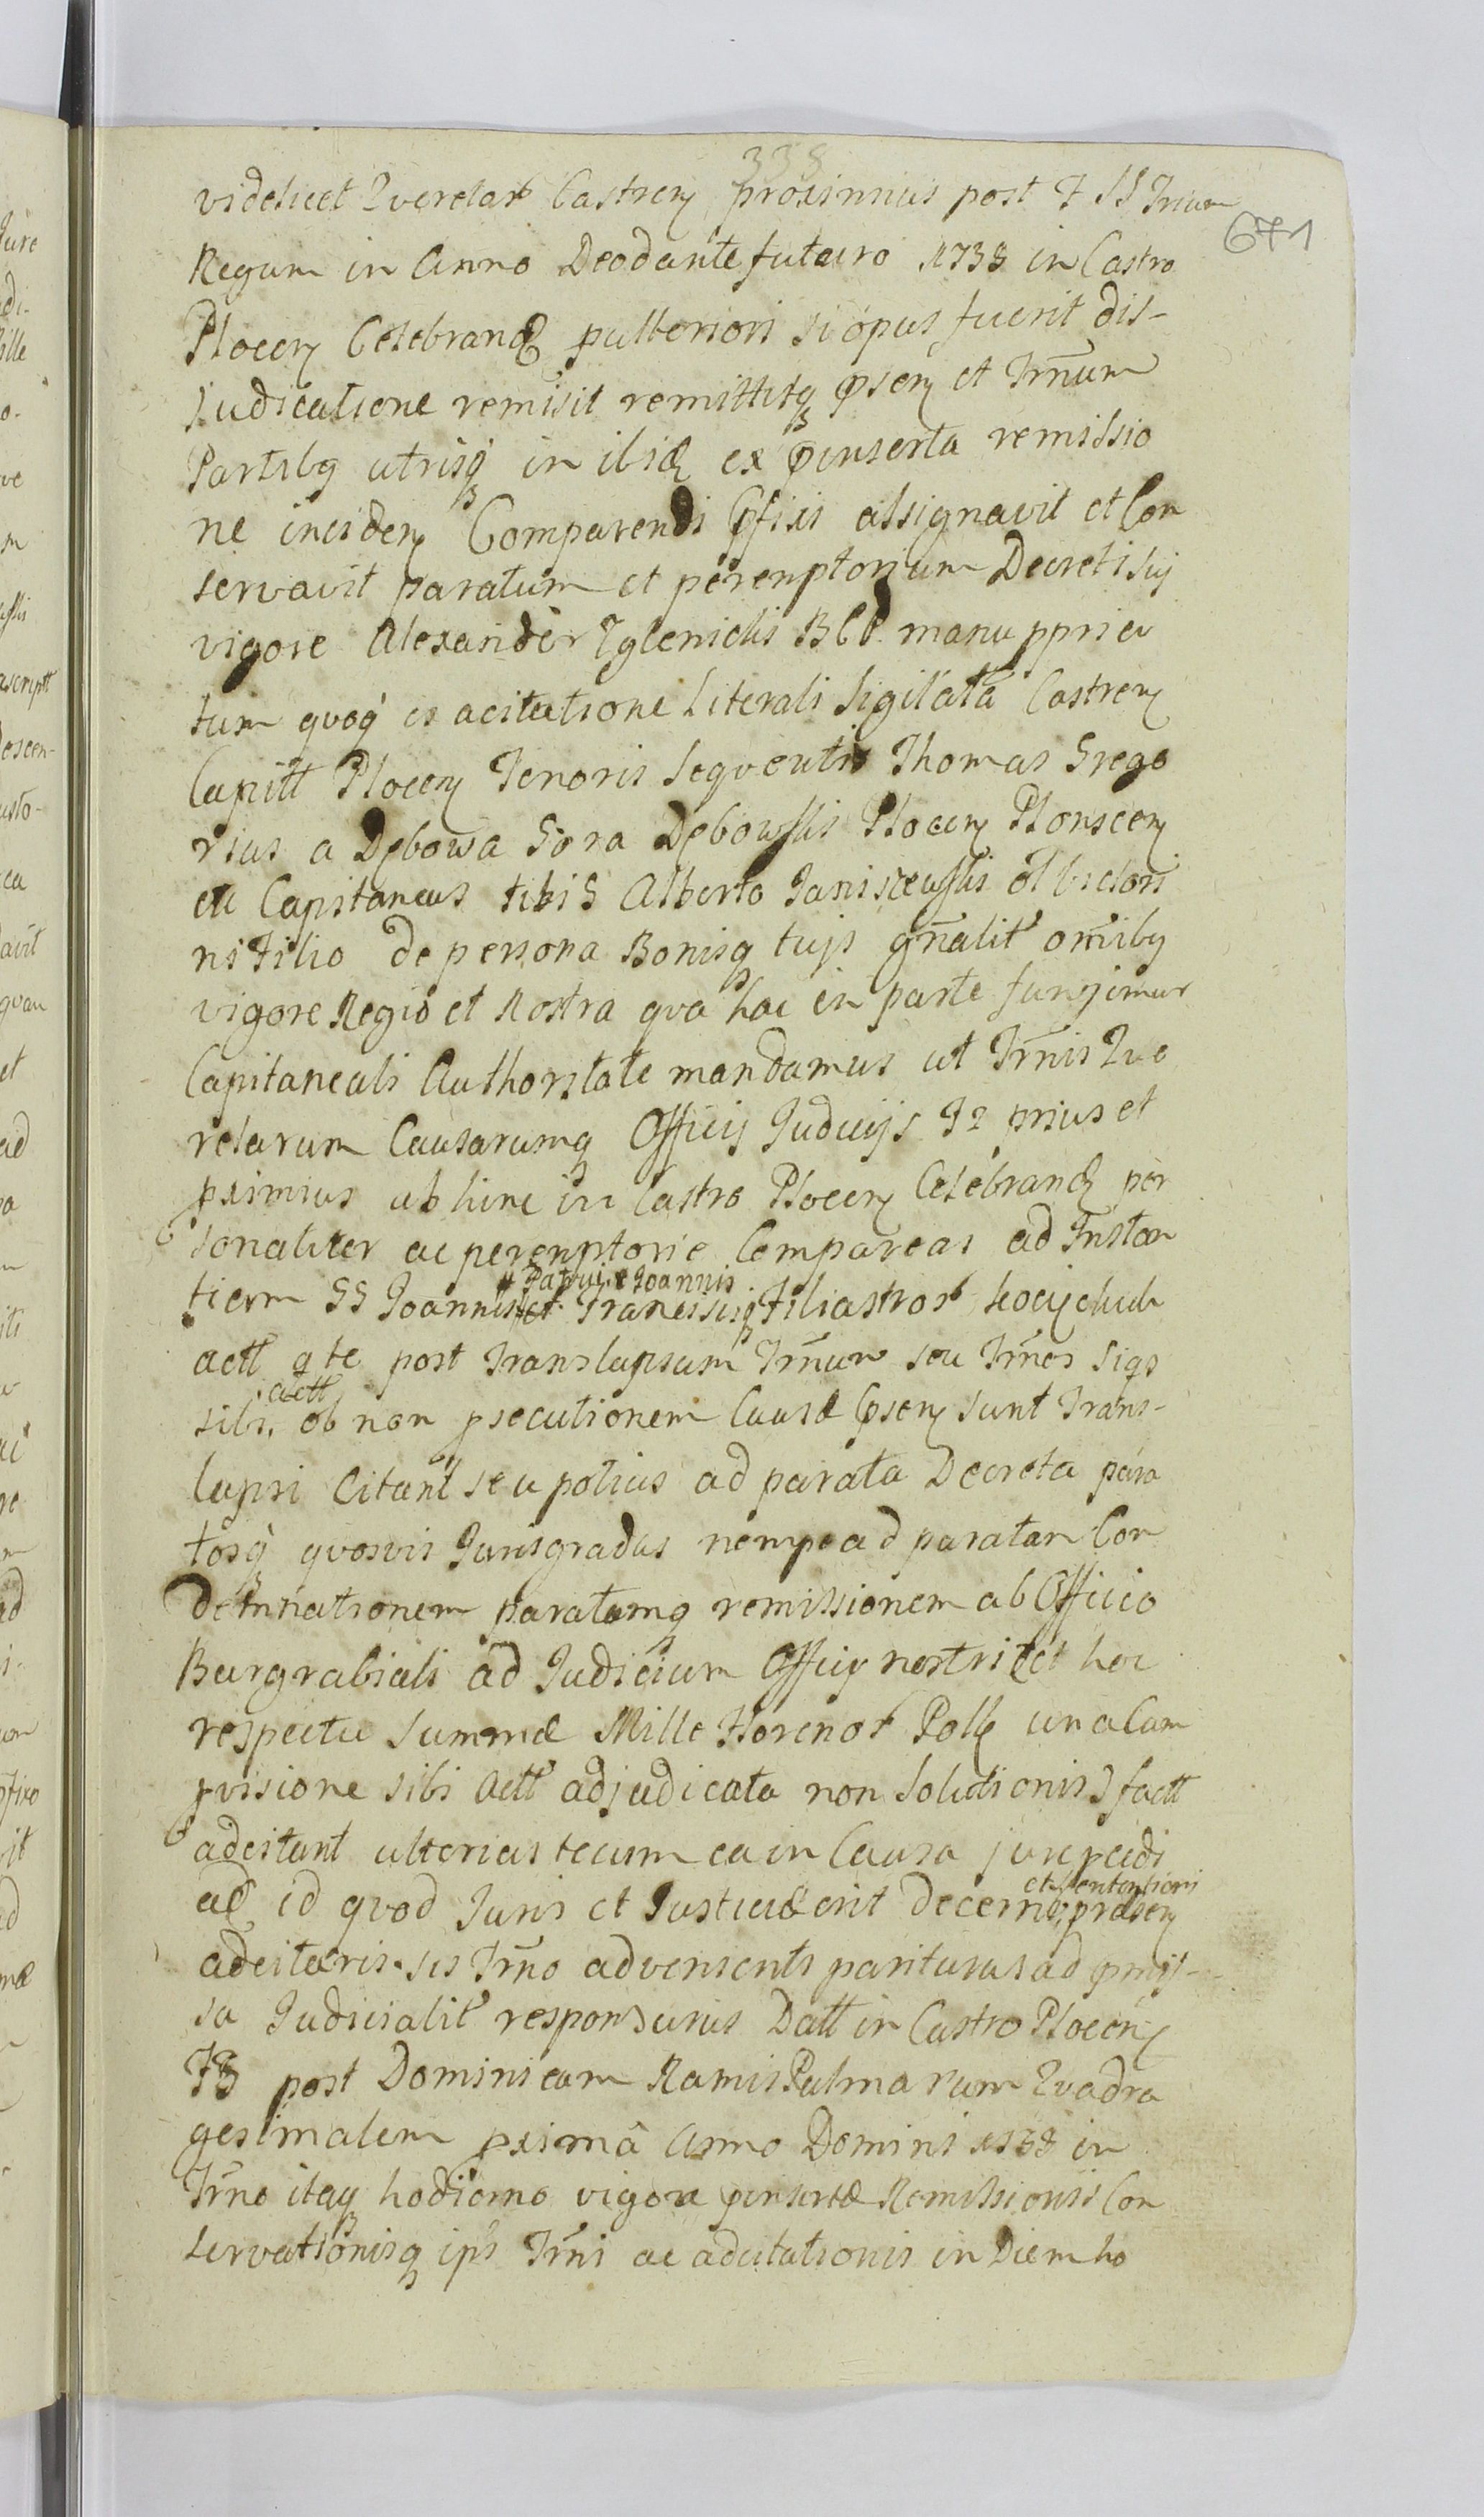 338
671
videlicet Querelar Castren proximius post F SS Trium
Regum in Anno Deo dante futuro 1738 in Castro
Plocen Celebrand pulteriori si opus fuerit dis-
judicatione remisit remittitq psen et Trnum
Partibq utrisq in ibid ex pinserta remissio
ne inciden Comparendi pfixit assignavit et Con
servavit paratum et peremptorium Decreti sui
vigore Alexander Zglenicki BCP manu ppria
tum quoq ex acitatione Literali Sigillata Castren
Capitt Plocen Tenoris sequentis Thomas Grego
rius a Dębowa Góra Dębowski Plocen Plonscen
etc Capitaneus tibi G Alberto Janiszewski ol Victori
ni Filio de persona Bonisq tuis gnalit omibq
vigore Regio et Nostra qva hac in parte fungimur
Capitaneali Authoritate mandamus ut Trnis Que
relarum Causarumq Officij Judicijs Io prius et
pximius ab hinc in Castro Plocen Celebrand per
sonaliter ac peremptorie Compareas ad Instan
tiam GG Joannis Patrui Joannis et Francisciq Filiastror
actt q te post Translapsum Trnum seu Trnos siqs
sibi actt ob non psecutionem Causæ psen sunt Trans-
lapsi Citant seu potius ad parata Decreta para
tosq quosvis Juris gradus nempe ad paratam Con
demnationem paratamq remissionem ab Officio
Burgrabiali ad Judicium Officij nostri et hoc
respectu Summæ Mille Florenor Polł una Cum
pvisione sibi actt adjudicata non solutionis factt
adcitant ulterius tecum ea in Causa jure pcedi
ad id quod Juris et Justitiæ erit decerni et sententiari præsen
adcitaris sis Trno advenienti pariturus ad pmis-
sa Judicialit responsurus Datt in Castro Plocen
F3 post Dominicam Ramis Palmarum Quadra
gesimalem pxima Anno Domini 1738 in
Trno itaq hodierno vigore pinsertæ Remissionis Con
servationisq ips Trni ac adcitationis in Diem ho